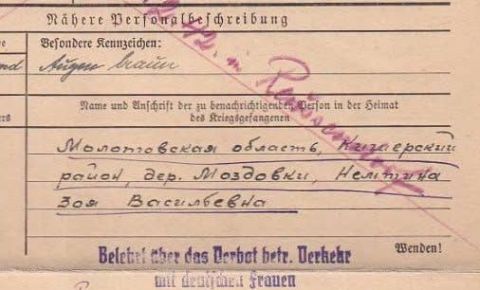 Nähere Personalbeschreibung
Besondere Kennzeichen:
Augen braun
42. in
Name und Anschrift der zu benachrichtigenden Person in der Heimat
des Kriegsgefangenen
Молотовская область, Кишерский
район, дер. Моздовки, Немтина
Зоя Васильевна
Wenden!
Belehrt über das Verbot betr. Verkehr
mit deutschen Frauen